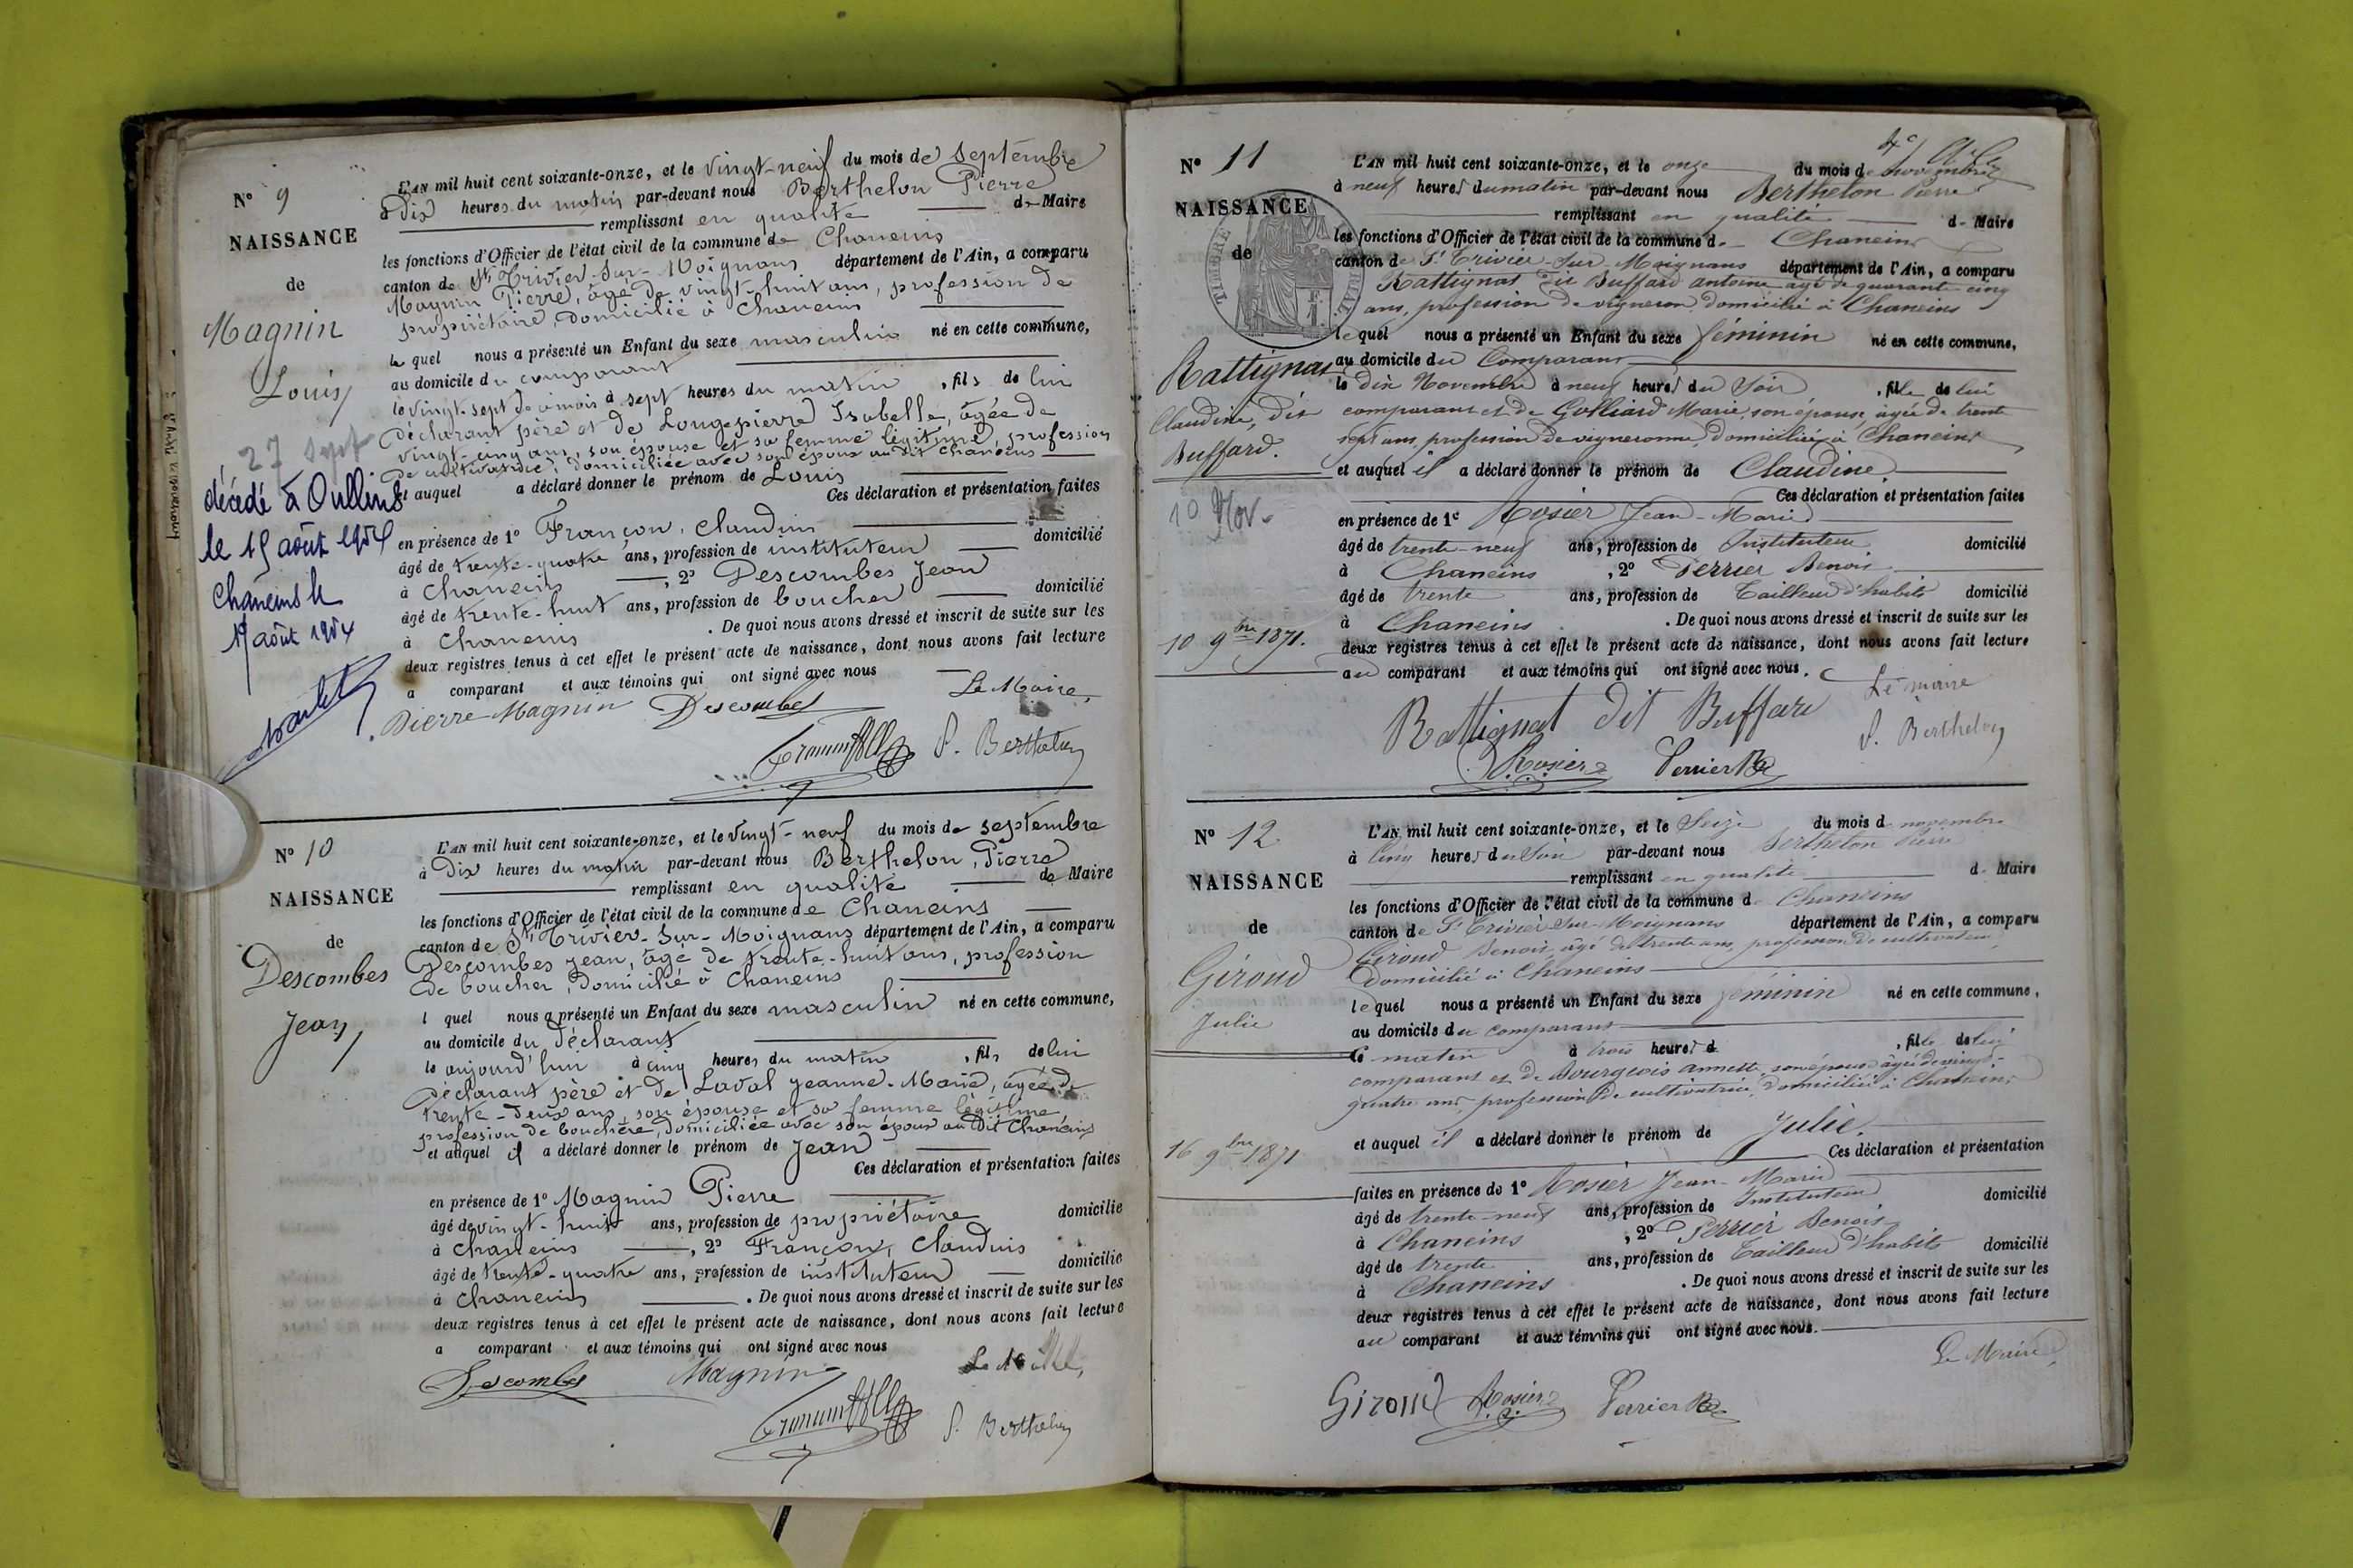 N° 9
NAISSANCE
de
Magnin
Louis
27 sept
décédé à Oullins
le 15 août 1954
Chaneins le
17 août 1954
L'AN mil huit cent soixante-onze, et le vingt-neuf du mois de septembre
à Dix heures du matin par-devant nous Berthelon Pierre
remplissant en qualité de Maire
les fonctions d'Officier de l'état civil de la commune de Chaneins
canton de St Trivier-sur-Moignans département de l'Ain, a comparu
Magnin Pierre, âgé de vingt-huit ans, profession de
propriétaire, domicilié à Chaneins
le quel nous a présenté un Enfant du sexe masculin né en cette commune,
au domicile du comparant
le vingt-sept de ce mois à sept heures du matin, fils de lui
déclarant père et de Longepierre Isabelle, âgée de
vingt-cinq ans, son épouse et sa femme légitime, profession
de cultivatrice, domiciliée avec son époux au dit Chaneins
et auquel a déclaré donner le prénom de Louis
Ces déclaration et présentation faites
en présence de 1° Françon, Claudius
âgé de trente-quatre ans, profession de instituteur domicilié
à Chaneins, 2° Descombes Jean
âgé de trente-huit ans, profession de boucher domicilié
à Chaneins. De quoi nous avons dressé et inscrit de suite sur les
deux registres tenus à cet effet le présent acte de naissance, dont nous avons fait lecture
a comparant et aux témoins qui ont signé avec nous
Le Maire,
Pierre Magnin Descombes
P. Berthelon
N° 10
NAISSANCE
de
Descombes
Jean
L'AN mil huit cent soixante-onze, et le vingt-neuf du mois de septembre
à Dix heures du matin par-devant nous Berthelon, Pierre
remplissant en qualité de Maire
les fonctions d'Officier de l'état civil de la commune de Chaneins
canton de St Trivier-sur-Moignans département de l'Ain, a comparu
Descombes Jean, âgé de trente-huit ans, profession
de boucher, domicilié à Chaneins
l quel nous a présenté un Enfant du sexe masculin né en cette commune,
au domicile du déclarant
le aujourd'hui à cinq heures du matin, fils de lui
déclarant père et de Laval Jeanne-Marie, âgée de
trente-deux ans, son épouse et sa femme légitime,
profession de bouchère, domiciliée avec son époux au dit Chaneins
et auquel il a déclaré donner le prénom de Jean
Ces déclaration et présentation faites
en présence de 1° Magnin Pierre
âgé de vingt-huit ans, profession de propriétaire domicilié
à Chaneins, 2° Françon, Claudius
âgé de trente-quatre ans, profession de instituteur domicilié
à Chaneins. De quoi nous avons dressé et inscrit de suite sur les
deux registres tenus à cet effet le présent acte de naissance, dont nous avons fait lecture
a comparant et aux témoins qui ont signé avec nous
Descombes Magnin Le Maire,
P. Berthelon
N° 11
NAISSANCE
de
TIMBRE
Rattignat
Claudine, dit
Buffard.
10 Nov.
10 9bre 1871.
L'AN mil huit cent soixante-onze, et le onze du mois de novembre
à neuf heures du matin par-devant nous Berthelon Pierre
remplissant en qualité de Maire
les fonctions d'Officier de l'état civil de la commune de Chaneins
canton de St Trivier-sur-Moignans département de l'Ain, a comparu
Rattignat dit Buffard Antoine âgé de quarante-cinq
ans, profession de vigneron, domicilié à Chaneins
lequel nous a présenté un Enfant du sexe féminin né en cette commune,
au domicile du Comparant
le dix Novembre à neuf heures du soir, fille de lui
comparant et de Golliard Marie, son épouse, âgée de trente
sept ans, profession de vigneronne, domiciliée à Chaneins
et auquel il a déclaré donner le prénom de Claudine.
Ces déclaration et présentation faites
en présence de 1° Rosier Jean-Marie
âgé de trente-neuf ans, profession de Instituteur domicilié
à Chaneins, 2° Perrier Benoit
âgé de trente ans, profession de Tailleur d'habits domicilié
à Chaneins. De quoi nous avons dressé et inscrit de suite sur les
deux registres tenus à cet effet le présent acte de naissance, dont nous avons fait lecture
au comparant et aux témoins qui ont signé avec nous.
Le maire
Rattignat dit Buffard
P. Berthelon
Rosier Perrier Be
N° 12
NAISSANCE
de
Giroud
Julie
16 9bre 1871
L'AN mil huit cent soixante-onze, et le Seize du mois d novembre
à Cinq heures du Soir par-devant nous Berthelon Pierre
remplissant en qualité de Maire
les fonctions d'Officier de l'état civil de la commune d Chaneins
canton de St Trivier-sur-Moignans département de l'Ain, a comparu
Giroud Benoit, âgé de trente ans, profession de cultivateur,
domicilié à Chaneins
lequel nous a présenté un Enfant du sexe féminin né en cette commune,
au domicile du comparant
le matin à trois heures d, fille de lui
comparant et de Bourgeois Annette, son épouse, âgée de vingt-
quatre ans, profession de cultivatrice, domiciliée à Chaneins
et auquel il a déclaré donner le prénom de Julie.
Ces déclaration et présentation
faites en présence de 1° Rosier Jean-Marie
âgé de trente-neuf ans, profession de Instituteur domicilié
à Chaneins, 2° Perrier Benoit
âgé de trente ans, profession de Tailleur d'habits domicilié
à Chaneins. De quoi nous avons dressé et inscrit de suite sur les
deux registres tenus à cet effet le présent acte de naissance, dont nous avons fait lecture
au comparant et aux témoins qui ont signé avec nous.
Le Maire,
Giroud Rosier Perrier Be